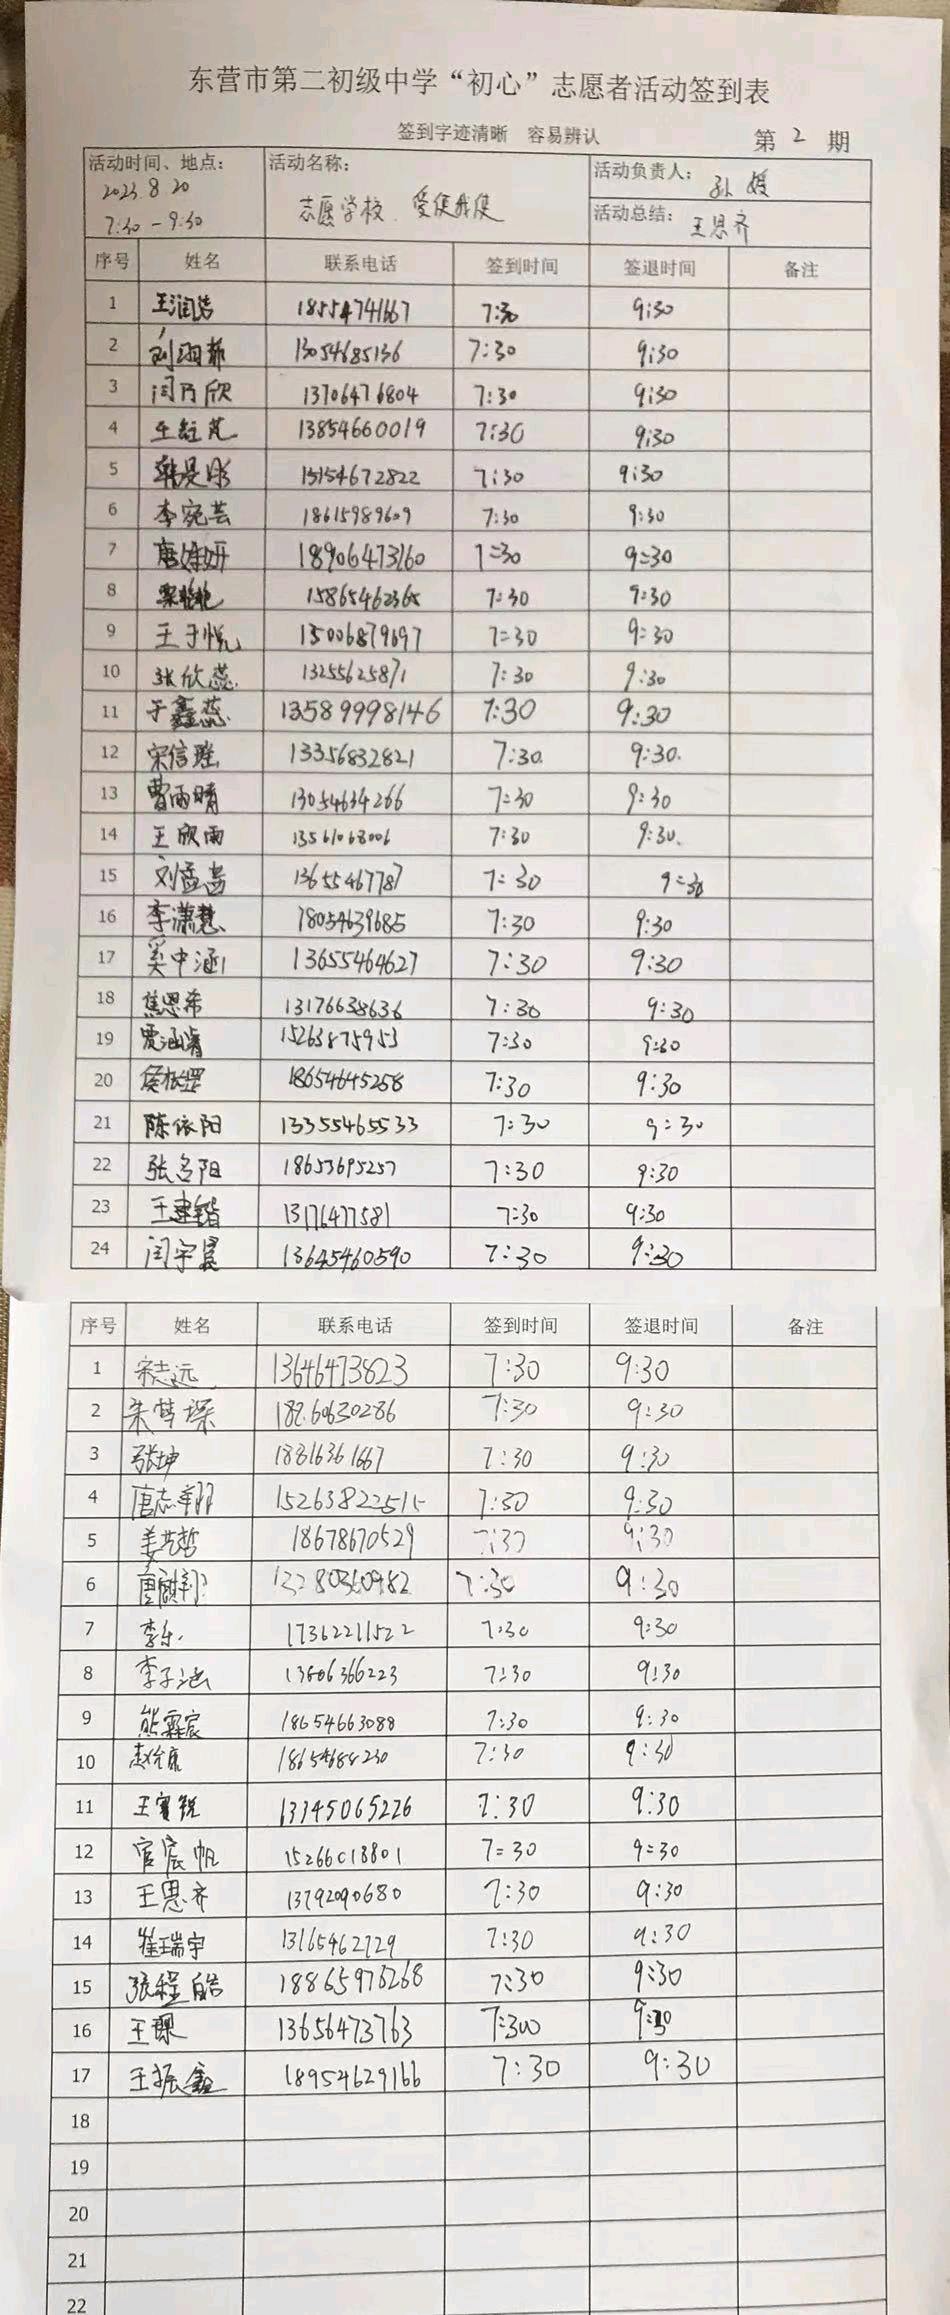 东营市第二初级中学“初心”志愿者活动签到表
签到字迹清晰 容易辨认 第 2 期
活动时间、地点: 活动名称: 活动负责人: 孙媛
2023.8.20 志愿学校. 爱使我使 活动总结: 王思齐
7:30-9:30
序号 姓名 联系电话 签到时间 签退时间 备注
1 王润浩 18554741667 7:30 9:30
2 刘羽菲 13054685136 7:30 9:30
3 闫乃欣 13706476804 7:30 9:30
4 王 13854660019 7:30 9:30
5 韩昊彤 13154672822 7:30 9:30
6 李宛芸 18615989609 7:30 9:30
7 唐妍 18906473160 7:30 9:30
8 15865462365 7:30 9:30
9 王于悦 15006879697 7:30 9:30
10 张欣蕊 13255625871 7:30 9:30
11 于鑫蕊 13589998146 7:30 9:30
12 宋信 13356832821 7:30. 9:30.
13 曹雨晴 13054634266 7:30 9:30
14 王欣雨 13561068006 7:30 9:30.
15 刘孟 13655467787 7:30 9:30
16 李潇慧 18054639685 7:30 9:30
17 奚中涵 13655464627 7:30 9:30
18 焦思希 13176638636 7:30 9:30
19 贾涵 15263875953 7:30 9:30
20 18654645258 7:30 9:30
21 陈依阳 13355465533 7:30 9:30
22 张名阳 18653695257 7:30 9:30
23 王建锴 13176477581 7:30 9:30
24 闫宇晨 13645460590 7:30 9:30
序号 姓名 联系电话 签到时间 签退时间 备注
1 宋志远 13646473823 7:30 9:30
2 朱梦琛 18260630286 7:30 9:30
3 张坤 18816361667 7:30 9:30
4 唐志翔 15263822515 7:30 9:30
5 姜艺哲 18678670529 7:30 9:30
6 唐翔 13280360982 7:30 9:30
7 李乐 17362211522 7:30 9:30
8 李子涵 13606366223 7:30 9:30
9 熊霖宸 18654663088 7:30 9:30
10 赵 18654684230 7:30 9:30
11 王宝锐 13745065226 7:30 9:30
12 官宸帆 15266018801 7:30 9:30
13 王思齐 13792090680 7:30 9:30
14 崔瑞宇 13165462729 7:30 9:30
15 张程皓 18865976268 7:30 9:30
16 王琛 13656473763 7:300 9:30
17 王振鑫 18954629166 7:30 9:30
18
19
20
21
22